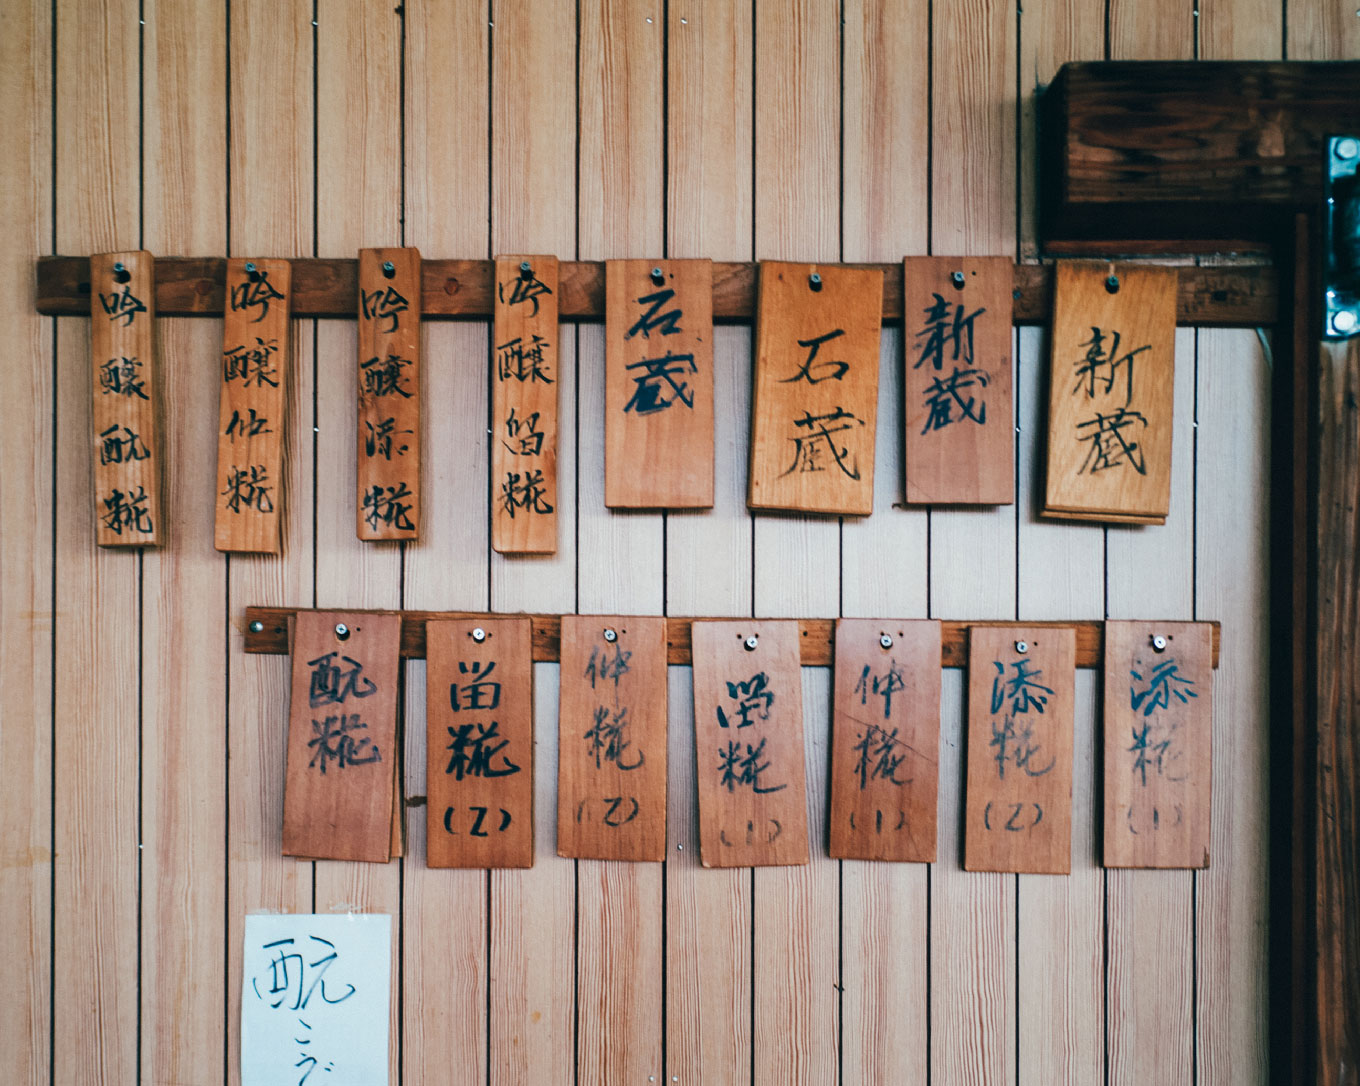 吟醸酛糀
吟醸仲糀
吟醸添糀
吟醸留糀
石蔵
石蔵
新蔵
新蔵
酛糀
留糀(2)
仲糀(2)
留糀(1)
仲糀(1)
添糀(2)
添糀(1)
酛こう